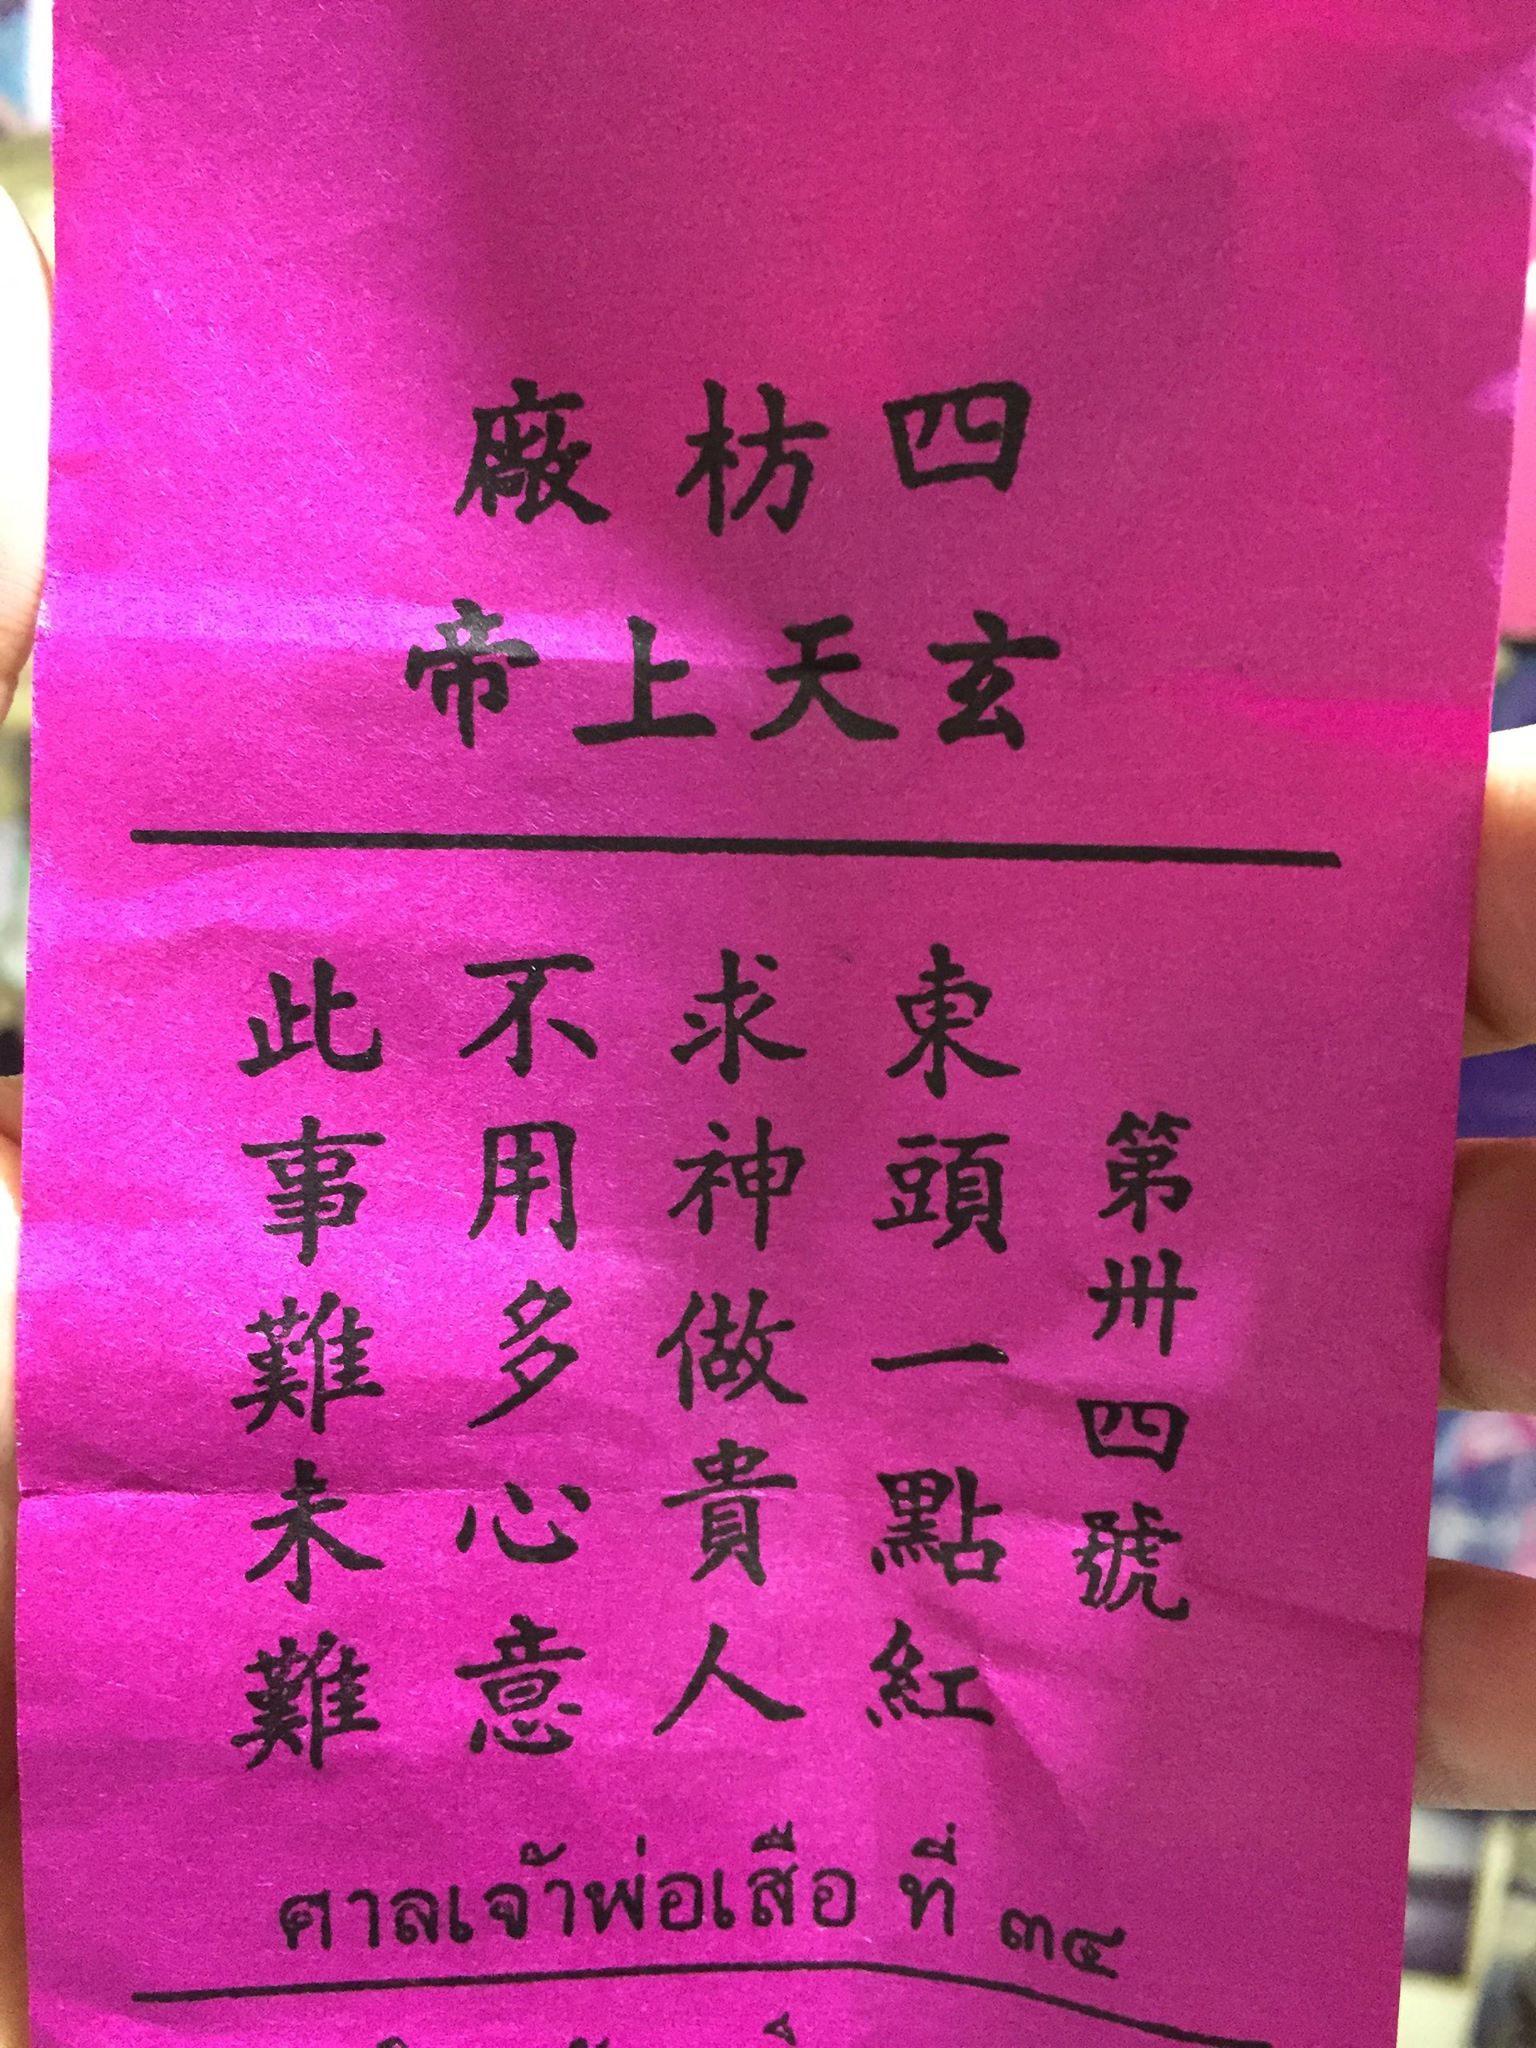 四枋廠
玄天上帝
第卅四號
東頭一點紅
求神做貴人
不用多心意
此事難未難
ศาลเจ้าพ่อเสือ ที่ ๓๔